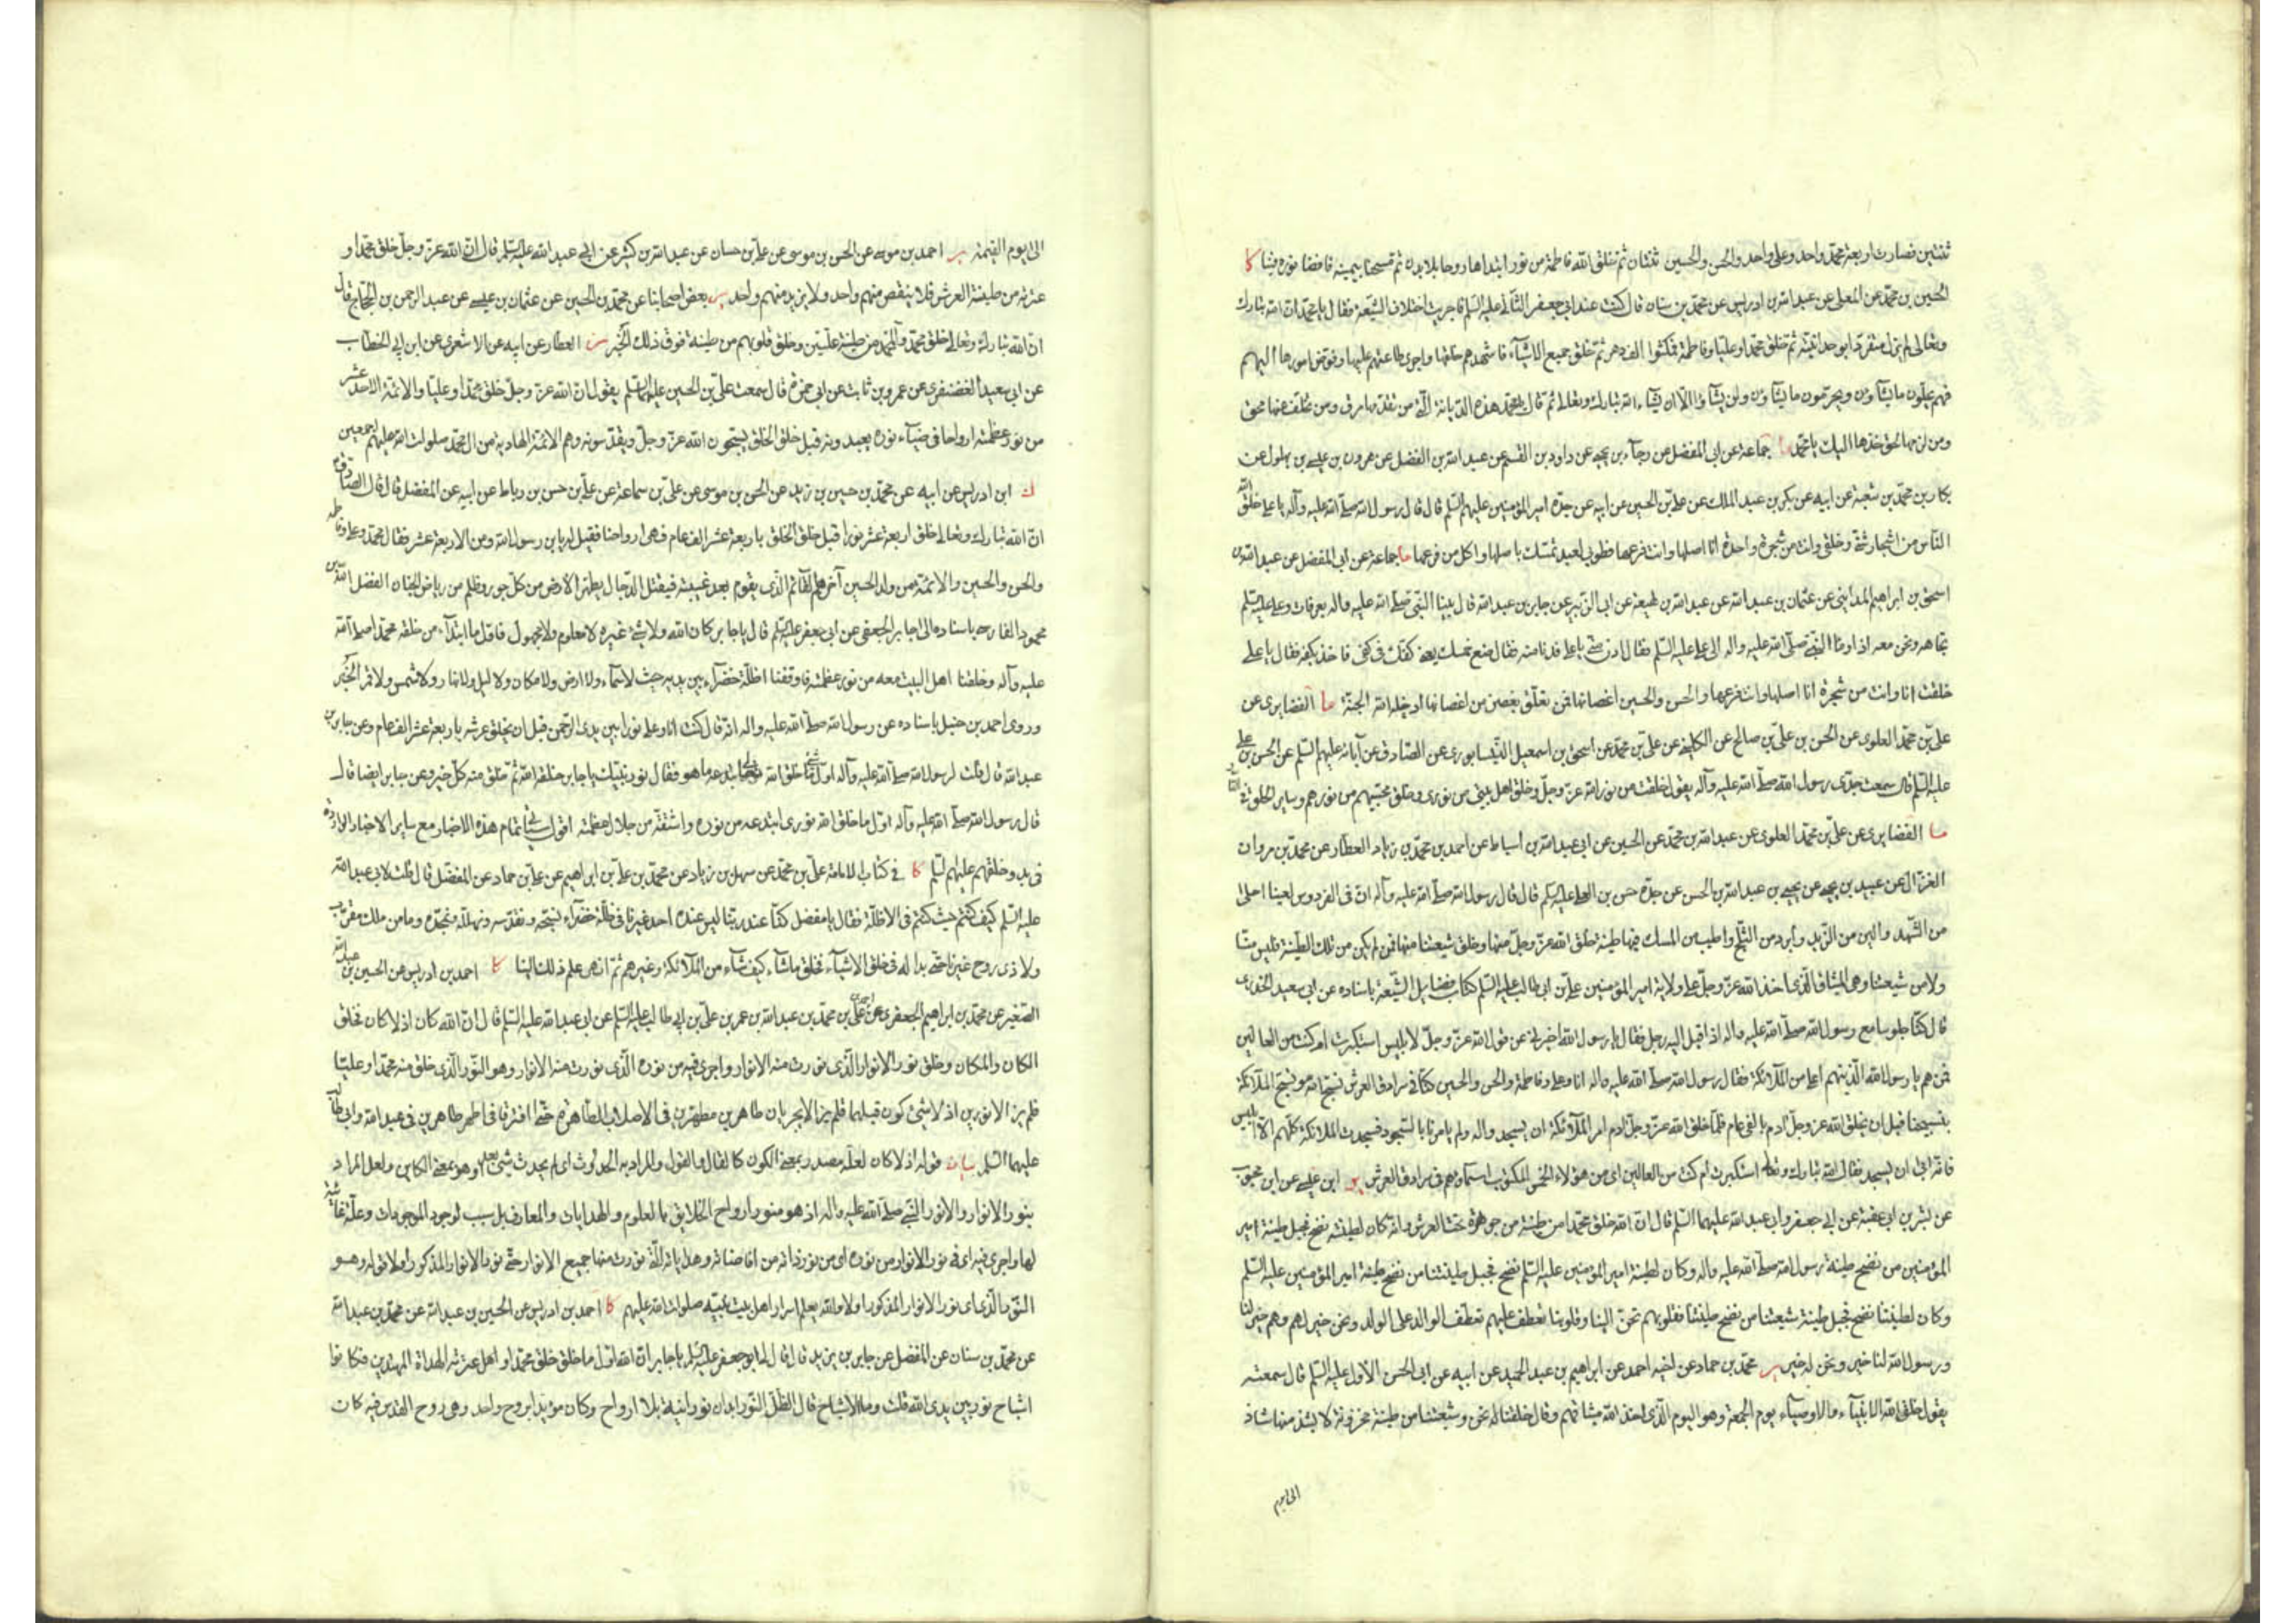 ثنتين فصارت اربعة محمد واحد وعلى واحد والحسن والحسين ثنتان ثم خلق الله فاطمة من نور ابتداها روحا بلا بدن ثم مسحنا بيمينه فافضا نوره فينا كا
الحسين بن محمد عن المعلى عن عبد الله بن ادريس عن محمد بن سنان قال كنت عند ابي جعفر الثاني عليه السلم فاجريت اختلاف الشيعة فقال يا محمد ان الله تبارك
وتعالى لم يزل متفردا بوحدانيته ثم خلق محمدا وعليا وفاطمة فمكثوا الف دهر ثم خلق جميع الاشيآء فاشهدهم خلقها واجرى طاعتهم عليها وفوض امورها اليهم
فهم يحلون ما يشآؤن ويحرمون ما يشآؤن ولن يشآؤا الا ان يشآء الله تبارك وتعالى ثم قال يا محمد هذه الديانة التي من تقدمها مرق ومن تخلف عنها محق
ومن لزمها لحق خذها اليك يا محمد ما جماعة عن ابي المفضل عن رجآء بن يحيى عن داود بن القسم عن عبد الله بن الفضل عن هرون بن عيسى بن بهلول عن
بكار بن محمد بن شعبة عن ابيه عن بكر بن عبد الملك عن على بن الحسين عن ابيه عن جده امير المؤمنين عليهم السلم قال قال رسول الله صلى الله عليه وآله يا على خلق الله
الناس من اشجار شتى وخلقني وانت من شجرة واحدة انا اصلها وانت فرعها فطوبى لعبد تمسك باصلها واكل من فرعها ما جماعة عن ابي المفضل عن عبد الله بن
اسحق بن ابراهيم المدايني عن عثمان بن عبد الله عن عبد الله بن لهيعة عن ابي الزبير عن جابر بن عبد الله قال بينا النبي صلى الله عليه واله بعرفات وعلى عليه السلم
تجاهه ونحن معه اذ اومأ النبي صلى الله عليه واله الى على عليه السلم فقال ادن مني يا على فدنا منه فقال ضع خمسك يعنى كفك في كفي فاخذ بكفه فقال يا على
خلقت انا وانت من شجرة انا اصلها وانت فرعها والحسن والحسين اغصانها فمن تعلق بغصن من اغصانها ادخله الله الجنة ما الغضايرى عن
على بن محمد العلوى عن الحسن بن على بن صالح عن الكليني عن على بن محمد عن اسحق بن اسمعيل النيسابورى عن الصادق عن آبائه عليهم السلم عن الحسن بن على
عليه السلم قال سمعت جدى رسول الله صلى الله عليه وآله يقول خلقت من نور الله عز وجل وخلق اهل بيتي من نورى وخلق محبيهم من نورهم وساير الخلق في النار
ما الغضايرى عن على بن محمد العلوى عن عبد الله بن محمد عن الحسين عن ابي عبد الله بن اسباط عن احمد بن محمد بن زياد العطار عن محمد بن مروان
الغزال عن عبيد بن يحيى عن يحيى بن عبد الله بن الحسن عن جده حسن بن على عليه السلم قال قال رسول الله صلى الله عليه وآله ان في الفردوس لعينا احلى
من الشهد والين من الزبد وابرد من الثلج واطيب من المسك فيها طينة خلقنا الله عز وجل منها وخلق شيعتنا منها فمن لم يكن من تلك الطينة فليس منا
ولا من شيعتنا وهي الميثاق الذى اخذ الله عز وجل على ولاية امير المؤمنين على بن ابي طالب عليه السلم كتاب فضايل الشيعة باسناده عن ابي سعيد الخدرى
قال كنا جلوسا مع رسول الله صلى الله عليه واله اذ اقبل اليه رجل فقال يا رسول الله اخبرني عن قول الله عز وجل لابليس استكبرت ام كنت من العالين
فمن هم يا رسول الله الذين هم اعلى من الملائكة فقال رسول الله صلى الله عليه واله انا وعلى وفاطمة والحسن والحسين كنا في سرادق العرش نسبح الله وتسبح الملائكة
بتسبيحنا قبل ان يخلق الله عز وجل آدم بالفي عام فلما خلق الله عز وجل آدم امر الملائكة ان يسجدوا له ولم يامرنا بالسجود فسجدت الملائكة كلهم الا ابليس
فانه ابى ان يسجد فقال الله تبارك وتعالى استكبرت ام كنت من العالين اى من هؤلاء الخمس المكتوب اسماؤهم في سرادق العرش ير ابن عيسى عن ابن محبوب
عن بشر بن ابي عقبة عن ابي جعفر وابي عبد الله عليهما السلم قال ان الله خلق محمدا من طينة من جوهرة تحت العرش وانه كان لطينته نضح فجبل طينة امير
المؤمنين من نضح طينة رسول الله صلى الله عليه واله وكان لطينة امير المؤمنين عليه السلم نضح فجبل طينتنا من نضح طينة امير المؤمنين عليه السلم
وكان لطينتنا نضح فجبل طينة شيعتنا من نضح طينتنا فقلوبهم تحن الينا وقلوبنا تعطف عليهم تعطف الوالد على الولد ونحن خير لهم وهم خير لنا
ورسول الله لنا خير ونحن له خير ير محمد بن حماد عن اخيه احمد عن ابراهيم بن عبد الحميد عن ابيه عن ابي الحسن الاول عليه السلم قال سمعته
يقول خلق الله الانبيآء والاوصيآء يوم الجمعة وهو اليوم الذى اخذ الله ميثاقهم وقال خلقنا نحن وشيعتنا من طينة مخزونة لا يشذ منها شاذ
الى يوم
الى يوم القيمة ير احمد بن موسى عن الحسن بن موسى عن على بن حسان عن عبد الله بن كثير عن ابي عبد الله عليه السلم قال ان الله عز وجل خلق محمدا و
عترته من طينة العرش فلا ينقص منهم واحد ولا يزيد منهم واحد ير بعض اصحابنا عن محمد بن الحسين عن عثمان بن عيسى عن عبد الرحمن بن الحجاج قال
ان الله تبارك وتعالى خلق محمدا وآل محمد من طينة عليين وخلق قلوبهم من طينة فوق ذلك الخبر العطار عن ابيه عن الاشعرى عن ابن ابي الخطاب
عن ابي سعيد الغضنفرى عن عمرو بن ثابت عن ابي حمزة قال سمعت على بن الحسين عليهما السلم يقول ان الله عز وجل خلق محمدا وعليا والائمة الاحد عشر
من نور عظمته ارواحا في ضيآء نوره يعبدونه قبل خلق الخلق يسبحون الله عز وجل ويقدسونه وهم الائمة الهادية من آل محمد صلوات الله عليهم اجمعين
ك ابن ادريس عن ابيه عن محمد بن حسين بن زيد عن الحسن بن موسى عن على بن سماعة عن على بن حسن بن رباط عن ابيه عن المفضل قال قال الصادق
ان الله تبارك وتعالى خلق اربعة عشر نورا قبل خلق الخلق باربعة عشر الف عام فهي ارواحنا فقيل له يا بن رسول الله ومن الاربعة عشر فقال محمد وعلى وفاطمة
والحسن والحسين والائمة من ولد الحسين آخرهم القائم الذى يقوم بعد غيبته فيقتل الدجال ويطهر الارض من كل جور وظلم من رياض الجنان الفضل الله بن
محمود الفارسي باسناده الى جابر الجعفي عن ابي جعفر عليه السلم قال يا جابر كان الله ولا شئ غيره لا معلوم ولا مجهول فاول ما ابتدآء من خلقه محمد صلى الله
عليه وآله وخلقنا اهل البيت معه من نور عظمته فاوقفنا اظلة خضرآء بين يديه حيث لا سمآء ولا ارض ولا مكان ولا ليل ولا نهار ولا شمس ولا قمر الخبر
وروى احمد بن حنبل باسناده عن رسول الله صلى الله عليه واله انه قال كنت انا وعلى نورا بين يدى الرحمن قبل ان يخلق عرشه باربعة عشر الف عام وعن جابر بن
عبد الله قال قلت لرسول الله صلى الله عليه وآله اول شئ خلق الله ما هو فقال نور نبيك يا جابر خلقه الله ثم خلق منه كل خير وعن جابر ايضا قال
قال رسول الله صلى الله عليه وآله اول ما خلق الله نورى ابتدعه من نوره واشتقه من جلال عظمته اقول سيأتي تمام هذه الاخبار مع ساير الاخبار الواردة
في بدو خلقهم عليهم السلم كا في كتاب الامامة على بن محمد عن سهل بن زياد عن محمد بن على بن ابراهيم عن على بن حماد عن المفضل قال قلت لابي عبد الله
عليه السلم كيف كنتم حيث كنتم في الاظلة فقال يا مفضل كنا عند ربنا ليس عنده احد غيرنا في ظلة خضرآء نسبحه ونقدسه ونهلله ونمجده وما من ملك مقرب
ولا ذى روح غيرنا حتى بدا له في خلق الاشيآء فخلق ماشآء كيف شآء من الملآئكة وغيرهم ثم انهى علم ذلك الينا كا احمد بن ادريس عن الحسين بن عبد الله
الصغير عن محمد بن ابراهيم الجعفرى عن احمد بن على بن محمد بن عبد الله بن عمر بن على بن ابي طالب عليه السلم عن ابي عبد الله عليه السلم قال ان الله كان اذ لا كان فخلق
الكان والمكان وخلق نور الانوار الذى نورت منه الانوار واجرى فيه من نوره الذى نورت منه الانوار وهو النور الذى خلق منه محمدا وعليا
فلم يزالا نورين اذ لا شئ كون قبلهما فلم يزالا يجريان طاهرين مطهرين في الاصلاب الطاهرة حتى افترقا في اطهر طاهرين في عبد الله وابي طالب
عليهما السلم بيان قوله اذ لا كان لعله مصدر بمعنى الكون كالقال والقول والمراد به الحدوث اى لم يحدث شئ بعد او هو بمعنى الكاين ولعل المراد
بنور الانوار والانور النبي صلى الله عليه واله اذ هو منور ارواح الخلايق بالعلوم والهدايات والمعارف بل سبب لوجود الموجودات وعلة غائية
لها واجرى فيه اى في نور الانوار من نوره اى من نور ذاته من افاضاته وهداياته التي نورت منها جميع الانوار حتى نور الانوار المذكور اولا قوله وهو
النور الذى اى نور الانوار المذكور اولا والله يعلم اسرار اهل بيت نبيه صلوات الله عليهم كا احمد بن ادريس عن الحسين بن عبد الله عن محمد بن عبد الله
عن محمد بن سنان عن المفضل عن جابر بن يزيد قال قال لي ابو جعفر عليه السلم يا جابر ان الله اول ما خلق خلق محمدا واهل عترته الهداة المهتدين فكانوا
اشباح نور بين يدى الله قلت وما الاشباح قال الظل النور ابدان نورانية بلا ارواح وكان مؤيدا بروح واحد وهي روح القدس فيه كان